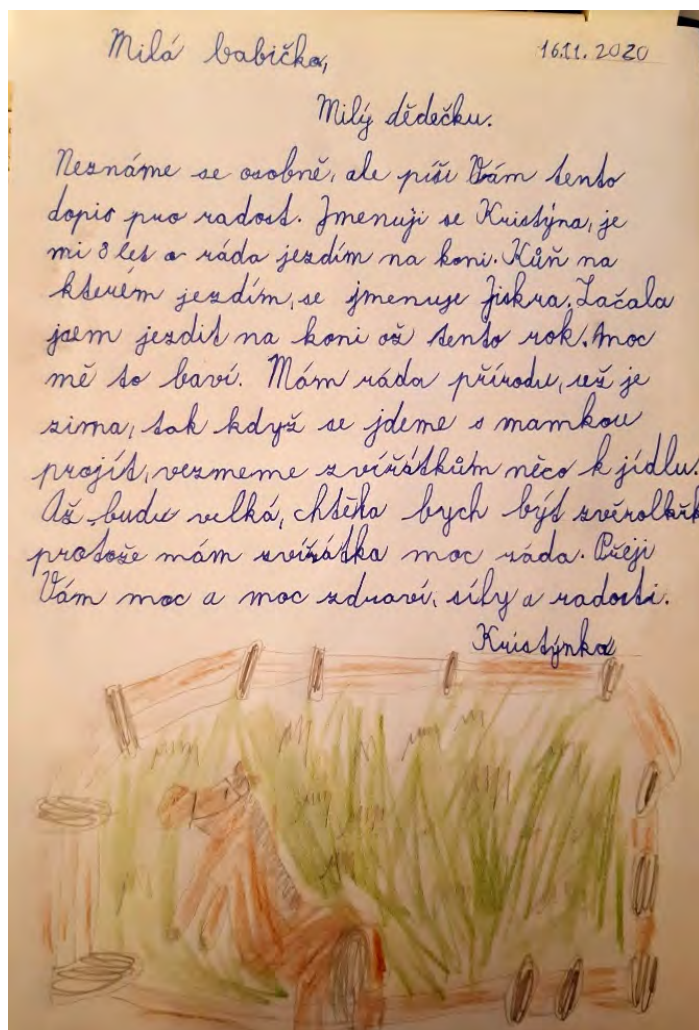 Milá babičko, 16.11.2020
Milý dědečku.
Neznáme se osobně, ale píši Vám tento
dopis pro radost. Jmenuji se Kristýna, je
mi 8 let a ráda jezdím na koni. Kůň na
kterém jezdím, se jmenuje Jiskra. Začala
jsem jezdit na koni až tento rok. Moc
mě to baví. Mám ráda přírodu, už je
zima, tak když se jdeme s mamkou
projít, vezmeme zvířátkům něco k jídlu.
Až budu velká, chtěla bych být
protože mám zvířátka moc ráda. Přeji
Vám moc a moc zdraví, síly a radosti.
Kristýnka